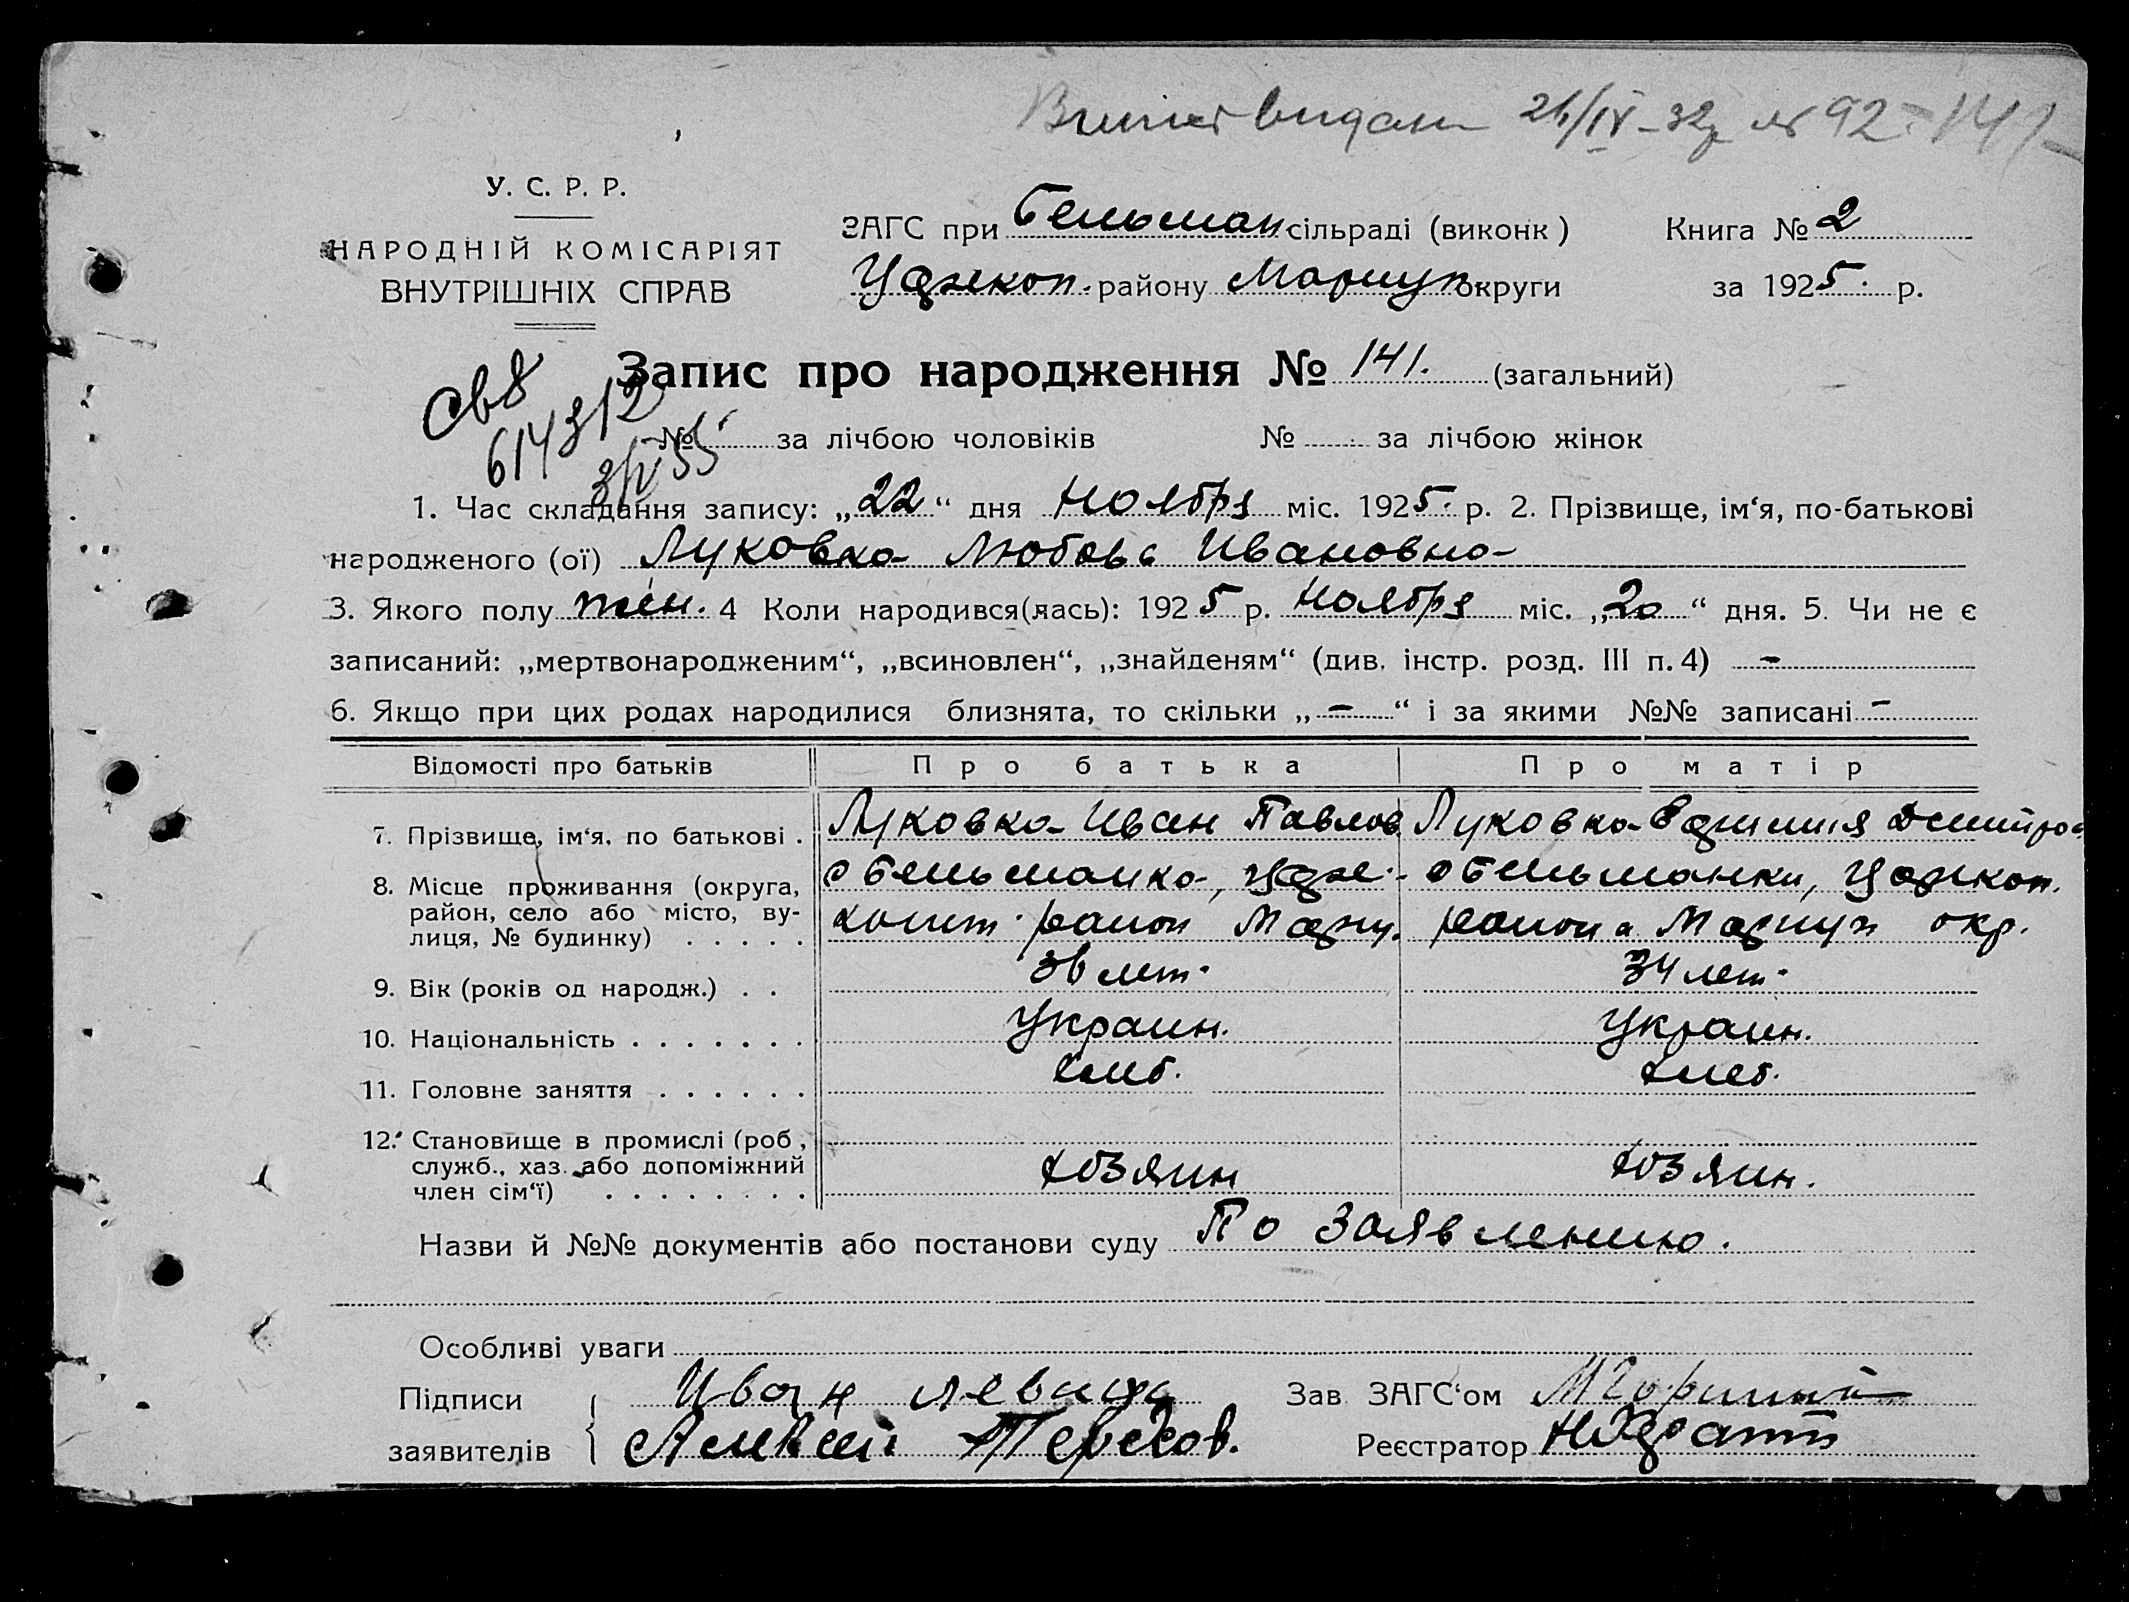 21/IV-32 № 92 141
У. С. Р. Р.
НАРОДНІЙ КОМІСАРІЯТ
ВНУТРІШНІХ СПРАВ
ЗАГС при Бельман сільраді (виконк) Книга № 2
району Мариуп. округи за 1925. р.
Запис про народження № 141. (загальний)
№ за лічбою чоловіків № за лічбою жінок
1. Час складання запису: „22“ дня Ноября міс. 1925. р. 2. Прізвище, ім‘я, по-батькові
народженого (ої) Луковка Любовь Ивановна
3. Якого полу жен. 4 Коли народився(лась): 1925 р. Ноября міс. „20“ дня. 5. Чи не є
записаний: „мертвонародженим“, „всиновлен“, „знайденям“ (див. інстр. розд. III п. 4) -
6. Якщо при цих родах народилися близнята, то скільки „-“ і за якими №№ записані -
Відомості про батьків Про батька Про матір
7. Прізвище, ім‘я, по батькові . Луковка Иван Павлов Луковка Дмитров
8. Місце проживання (округа,
район, село або місто, ву-
лиця, № будинку) . . . . .
с Бельманка,
район
с Бельманки,
района Мариуп окр.
9. Вік (років од народж.) . . 36 лет. 34 лет.
10. Національність . . . . . . . Украин. Украин.
11. Головне заняття . . . . . . хлеб. хлеб.
12. Становище в промислі (роб,
служб., хаз. або допоміжний
член сім‘ї) . . . . . . . . хозяин хозяин.
Назви й №№ документів або постанови суду По заявлению.
Особливі уваги
Підписи Иван Зав ЗАГС‘ом
заявителів Алексей Реєстратор